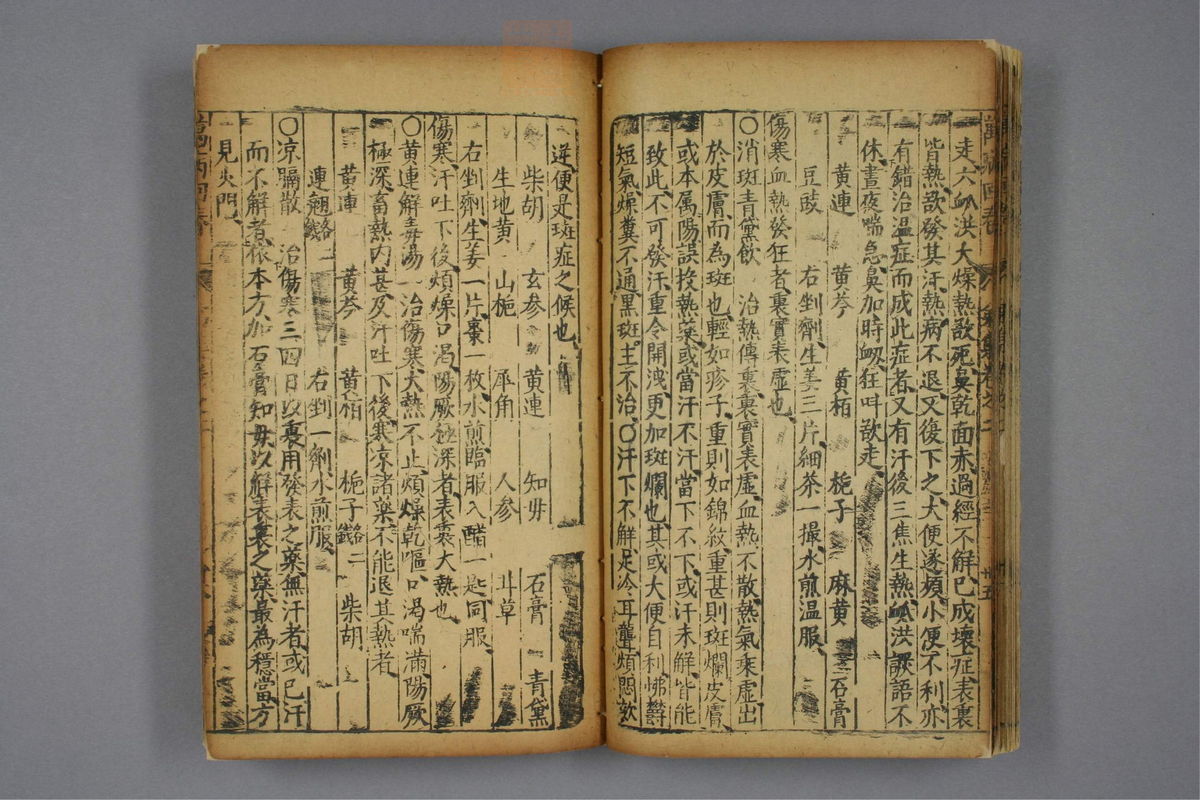 走六血洪大燥熱欲死鼻乾面赤過經不解已成壞症表裏
皆熱欲發其汗熱病不退又復下之大便遂頻小便不利亦
有錯治溫症而成此症者又有汗後三焦生熱血洪譫語不
休晝夜喘急鼻加時衂狂叫欲走
黃連 黃芩 黃栢 梔子 麻黃 石膏
豆豉 右剉劑生姜三片細茶一撮水煎溫服
傷寒血熱發狂者裏實表虛也
〇消斑青黛飲 治熱傳裏裏實表虛血熱不散熱氣乘虛出
於皮膚而為斑也輕如疹子重則如錦紋重甚則斑爛皮膚
或本属陽誤投熱藥或當汗不汗當下不下或汗未解皆能
致此不可發汗重令開洩更加斑爛也其或大便自利怫欝
短氣燥糞不通黑斑主不治〇汗下不觧足冷耳聾煩悶欬
逆便是斑症之候也
柴胡 玄参 黃連 知毋 石膏 青黛
生地黃 山梔 犀角 人参 甘草
右剉劑生姜一片棗一枚水煎臨服入醋一匙同服
傷寒汗吐下後煩燥口渴陽厥極深者表裏大熱也
〇黃連解毒湯 治傷寒大熱不止煩燥乾嘔口渴喘滿陽厥
極深畜熱内甚及汗吐下後寒凉諸藥不能退其熱者
黃連 黃芩 黃栢 梔子 柴胡
連翹 右剉一劑水煎服
〇凉膈散 治傷寒三四日以裏用發表之藥無汗者或已汗
而不解者依本方加石膏知毋以解表裏之藥最為穩當方
見火門